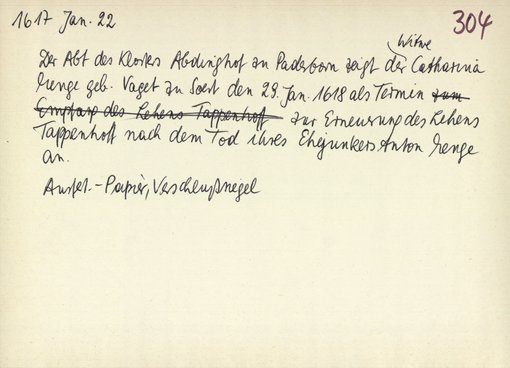 1617 Jan. 22
304
Der Abt des Klosters Abdinghof zu Paderborn zeigt der Witwe Catharina
Menge geb. Vaget zu Soest den 29. Jan. 1618 als Termin zum
Empfang des Lehens Tappenhoff zur Erneuerung des Lehens
Tappenhoff nach dem Tod ihres Ehejunkers Anton Menge
an.
Ausf.-Papier, Verschlußsiegel